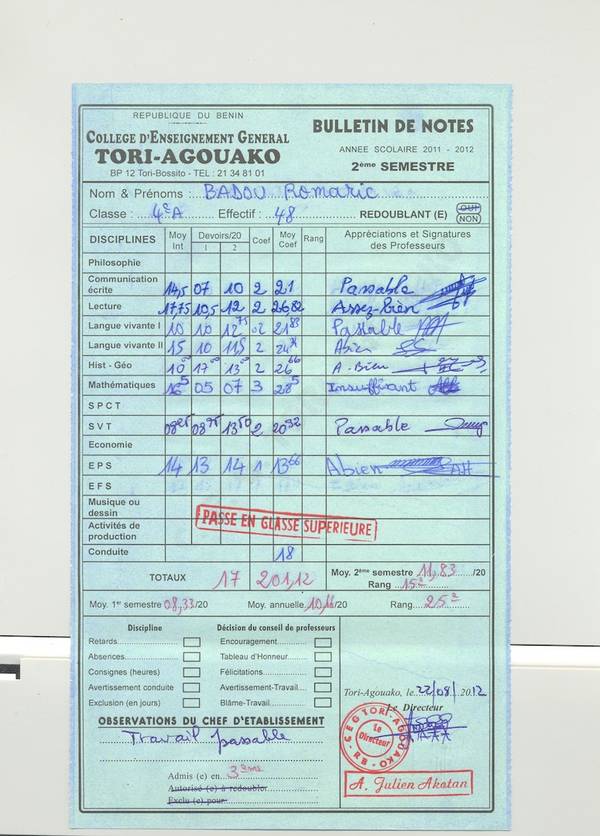 REPUBLIQUE DU BENIN
COLLEGE D'ENSEIGNEMENT GENERAL
TORI-AGOUAKO
BP 12 Tori-Bossito - TEL : 21 34 81 01
BULLETIN DE NOTES
ANNEE SCOLAIRE 2011 - 2012
2ème SEMESTRE
Nom & Prénoms : BADOU Romaric
Classe : 4e A Effectif : 48 REDOUBLANT (E) OUI NON
DISCIPLINES Moy Int Devoirs/20 1 2 Coef Moy Coef Rang Appréciations et Signatures des Professeurs
Philosophie
Communication écrite 14,5 07 10 2 21 Passable
Lecture 17,75 10,5 12 2 26,82 Assez-bien
Langue vivante I 10 10 12,75 02 21,83 Passable
Langue vivante II 15 10 11,5 2 Abien
Hist - Géo 10 17 13 2 26,66 A-Bien
Mathématiques 16,5 05 07 3 28,5 Insuffisant
SPCT
SVT 08,25 08,75 13,50 2 20,32 Passable
Economie
EPS 14 13 14 1 13,66 Abien
EFS
Musique ou dessin
PASSE EN CLASSE SUPERIEURE
Activités de production
Conduite 18
TOTAUX 17 201,12 Moy. 2ème semestre 11,83/20
Rang 15e
Moy. 1er semestre 08,33/20 Moy. annuelle 10,66/20 Rang 25e
Discipline
Retards
Absences
Consignes (heures)
Avertissement conduite
Exclusion (en jours)
Décision du conseil de professeurs
Encouragement
Tableau d'Honneur
Félicitations
Avertissement-Travail
Blâme-Travail
OBSERVATIONS DU CHEF D'ETABLISSEMENT
Travail passable
Admis (e) en 3ème
Autorisé (e) à redoubler
Exclu (e) pour
Tori-Agouako, le 22/08/2012
Le Directeur
CEG TORI-AGOUAKO
Le Directeur
RB
A. Julien Akotan